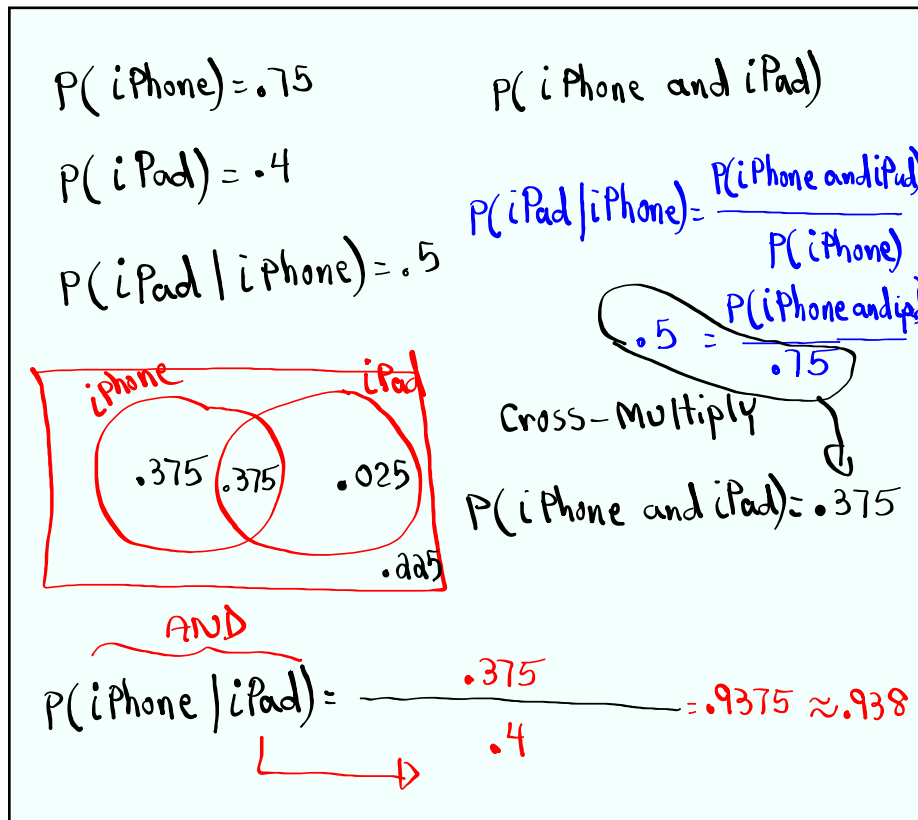 P(iPhone)=.75
P(iPad)=.4
P(iPad|iphone)=.5
P(iPhone and iPad)
P(iPad/iPhone)=P(iPhone and iPad)
P(iPhone)
.5 = P(iPhone and ipa
.75
Cross-Multiply
P(iPhone and iPad)=.375
iPhone
iPad
.375
.375
.025
.225
AND
P(iPhone|iPad)= .375
.4
=.9375 ≈.938